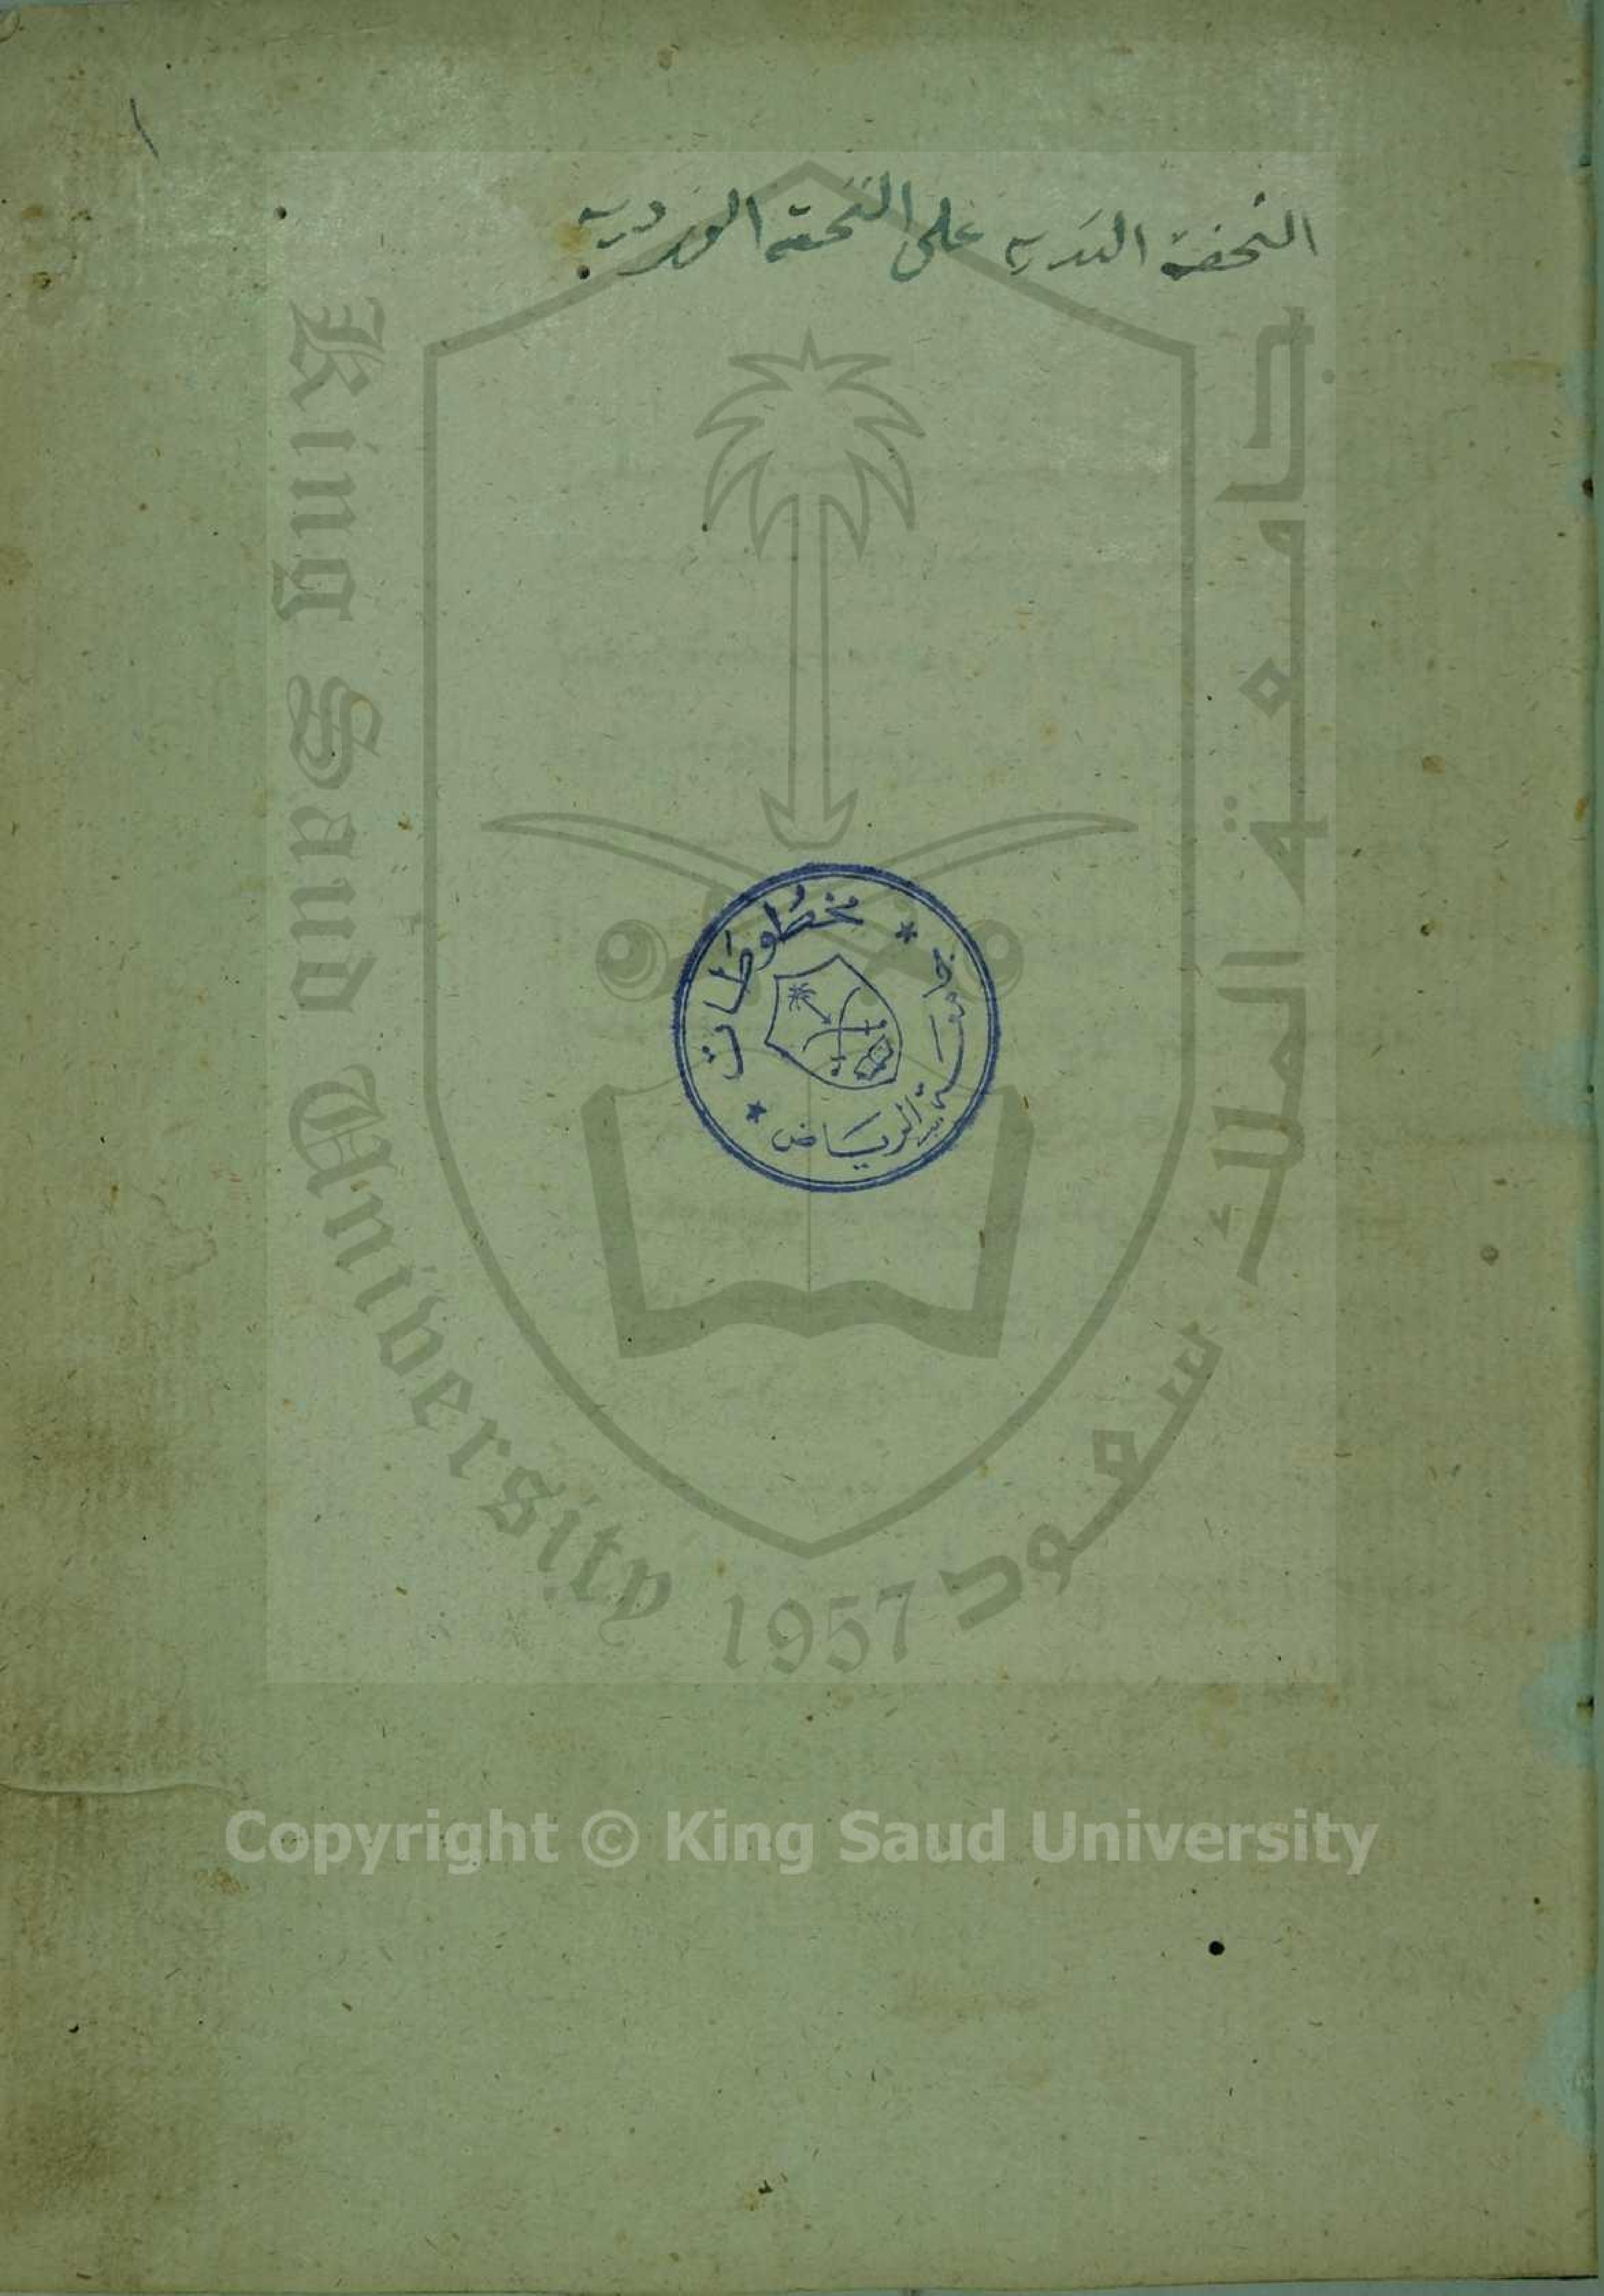 ١
التحفة الندية على التحفة الوردية
مخطوطات
جامعة الرياض
King Saud University
1957
جامعة الملك سعود
Copyright © King Saud University